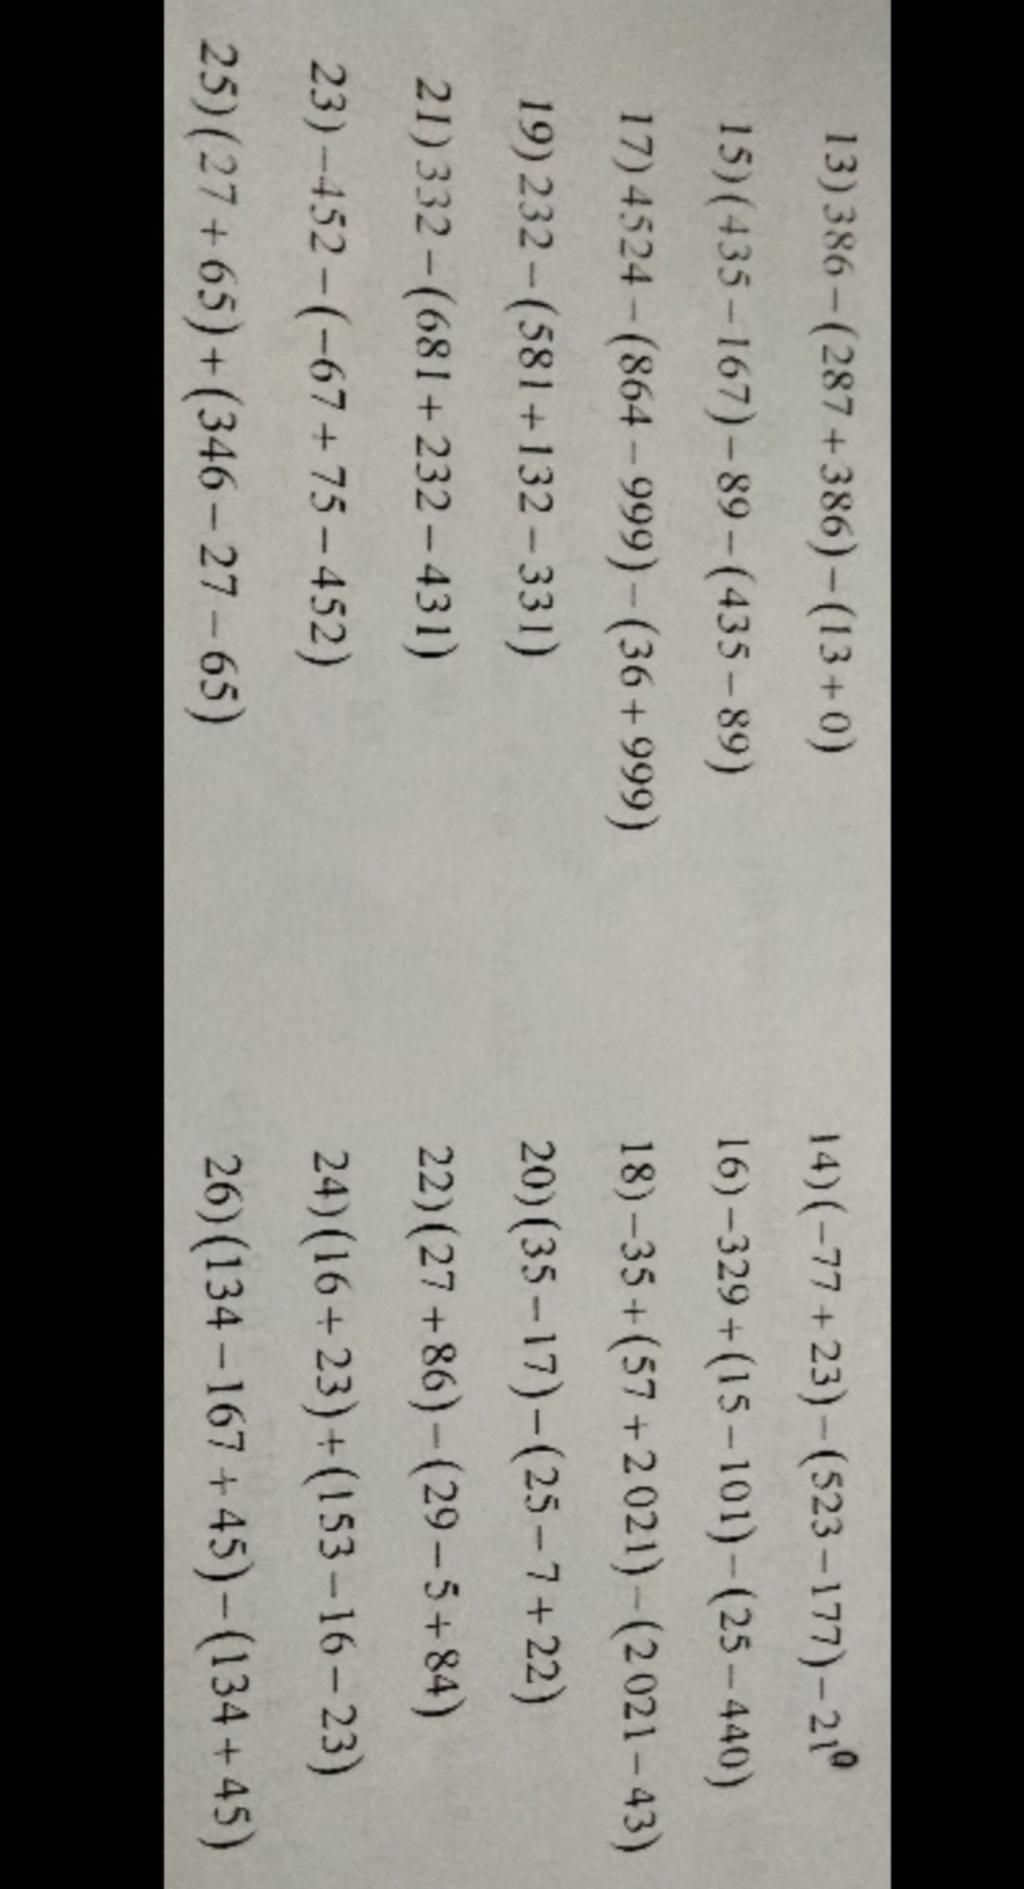 13) 386 – (287 + 386) – (13 + 0)
14) (–77 + 23) – (523 – 177) – 21⁰
15) (435 – 167) – 89 – (435 – 89)
16) –329 + (15 – 101) – (25 – 440)
17) 4524 – (864 – 999) – (36 + 999)
18) –35 + (57 + 2021) – (2021 – 43)
19) 232 – (581 + 132 – 331)
20) (35 – 17) – (25 – 7 + 22)
21) 332 – (681 + 232 – 431)
22) (27 + 86) – (29 – 5 + 84)
23) –452 – (–67 + 75 – 452)
24) (16 + 23) + (153 – 16 – 23)
25) (27 + 65) + (346 – 27 – 65)
26) (134 – 167 + 45) – (134 + 45)